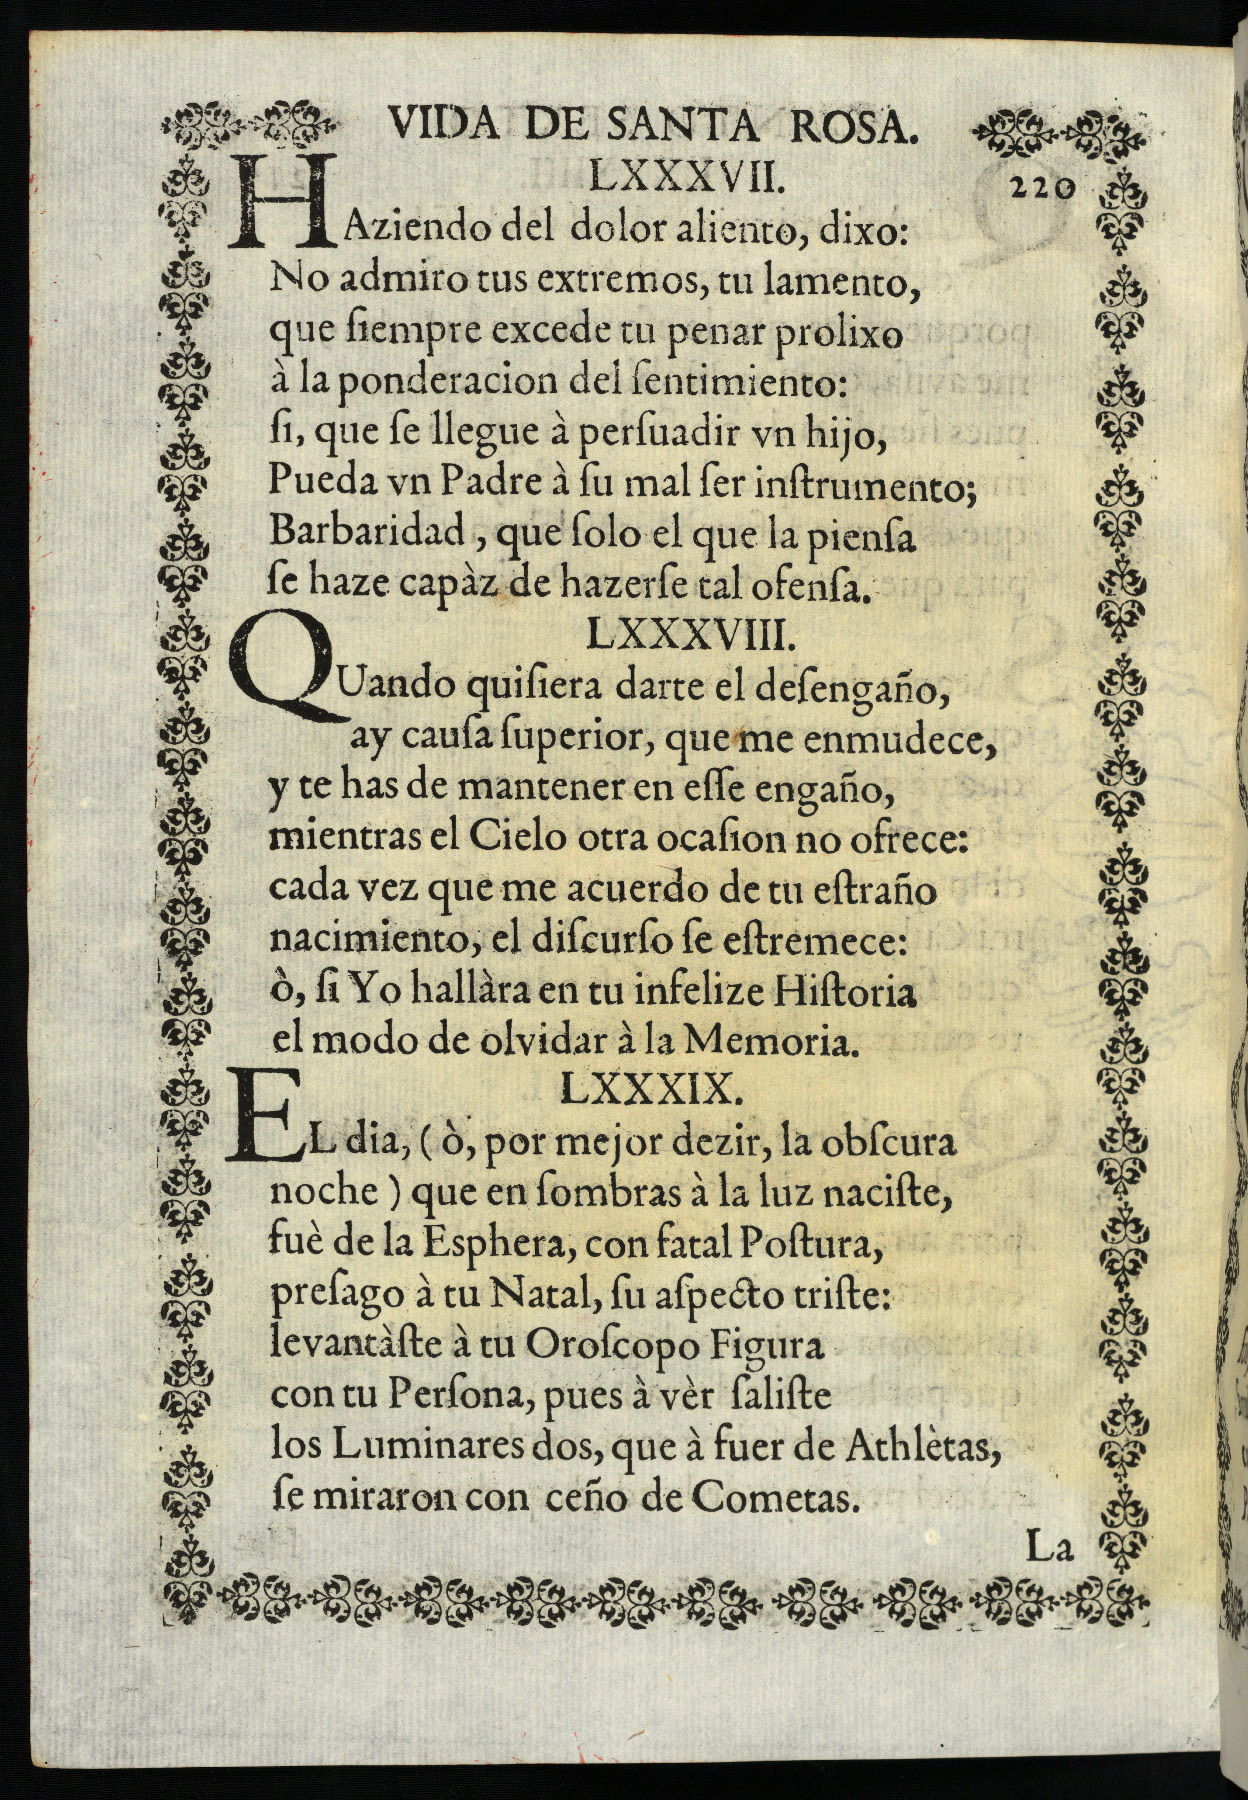 VIDA DE SANTA ROSA.
LXXXVII.
220
HAziendo del dolor aliento, dixo:
No admiro tus extremos, tu lamento,
que ſiempre excede tu penar prolixo
à la ponderacion del ſentimiento:
ſi, que ſe llegue à perſuadir vn hijo,
Pueda vn Padre à ſu mal ſer inſtrumento;
Barbaridad, que ſolo el que la pienſa
ſe haze capàz de hazerſe tal ofenſa.
LXXXVIII.
QUando quiſiera darte el deſengaño,
ay cauſa ſuperior, que me enmudece,
y te has de mantener en eſſe engaño,
mientras el Cielo otra ocaſion no ofrece:
cada vez que me acuerdo de tu eſtraño
nacimiento, el diſcurſo ſe eſtremece:
ò, ſi Yo hallàra en tu infelize Hiſtoria
el modo de olvidar à la Memoria.
LXXXIX.
EL dia, ( ò, por mejor dezir, la obſcura
noche ) que en ſombras à la luz naciſte,
fuè de la Esphera, con fatal Poſtura,
preſago à tu Natal, ſu aſpecto triſte:
levantàſte à tu Oroſcopo Figura
con tu Perſona, pues à vèr ſaliſte
los Luminares dos, que à fuer de Athlètas,
ſe miraron con ceño de Cometas.
La